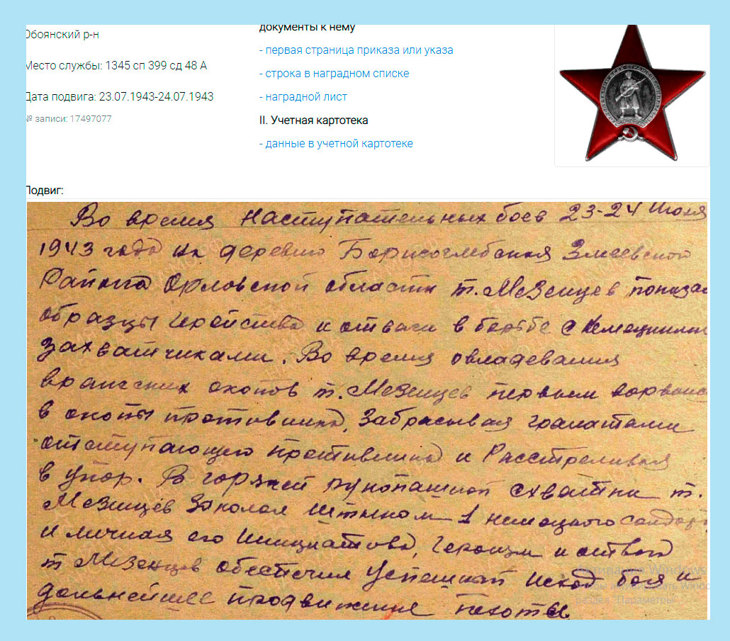 Обоянский р-н
документы к нему
- первая страница приказа или указа
Место службы: 1345 сп 399 сд 48 А
- строка в наградном списке
Дата подвига: 23.07.1943-24.07.1943
- наградной лист
№ записи: 17497077
II. Учетная картотека
- данные в учетной картотеке
Подвиг:
Во время наступательных боев 23-24 июля
1943 года на деревню Борисоглебская Змеевской
района Орловской области т. Мезенцев показал
образцы геройства и отваги в борьбе с немецкими
захватчиками. Во время овладевания
вражеских окопов т. Мезенцев первым ворвался
в окопы противника, забрасывая гранатами
отступающего противника и расстреливая
в упор. В горячей рукопашной схватки т.
Мезенцев заколол штыком 1 немецкого солдата
и личная его инициатива, героизм и отвага
т Мезенцов обеспечил успешный исход боя и
дальнейшее продвижение пехоты.